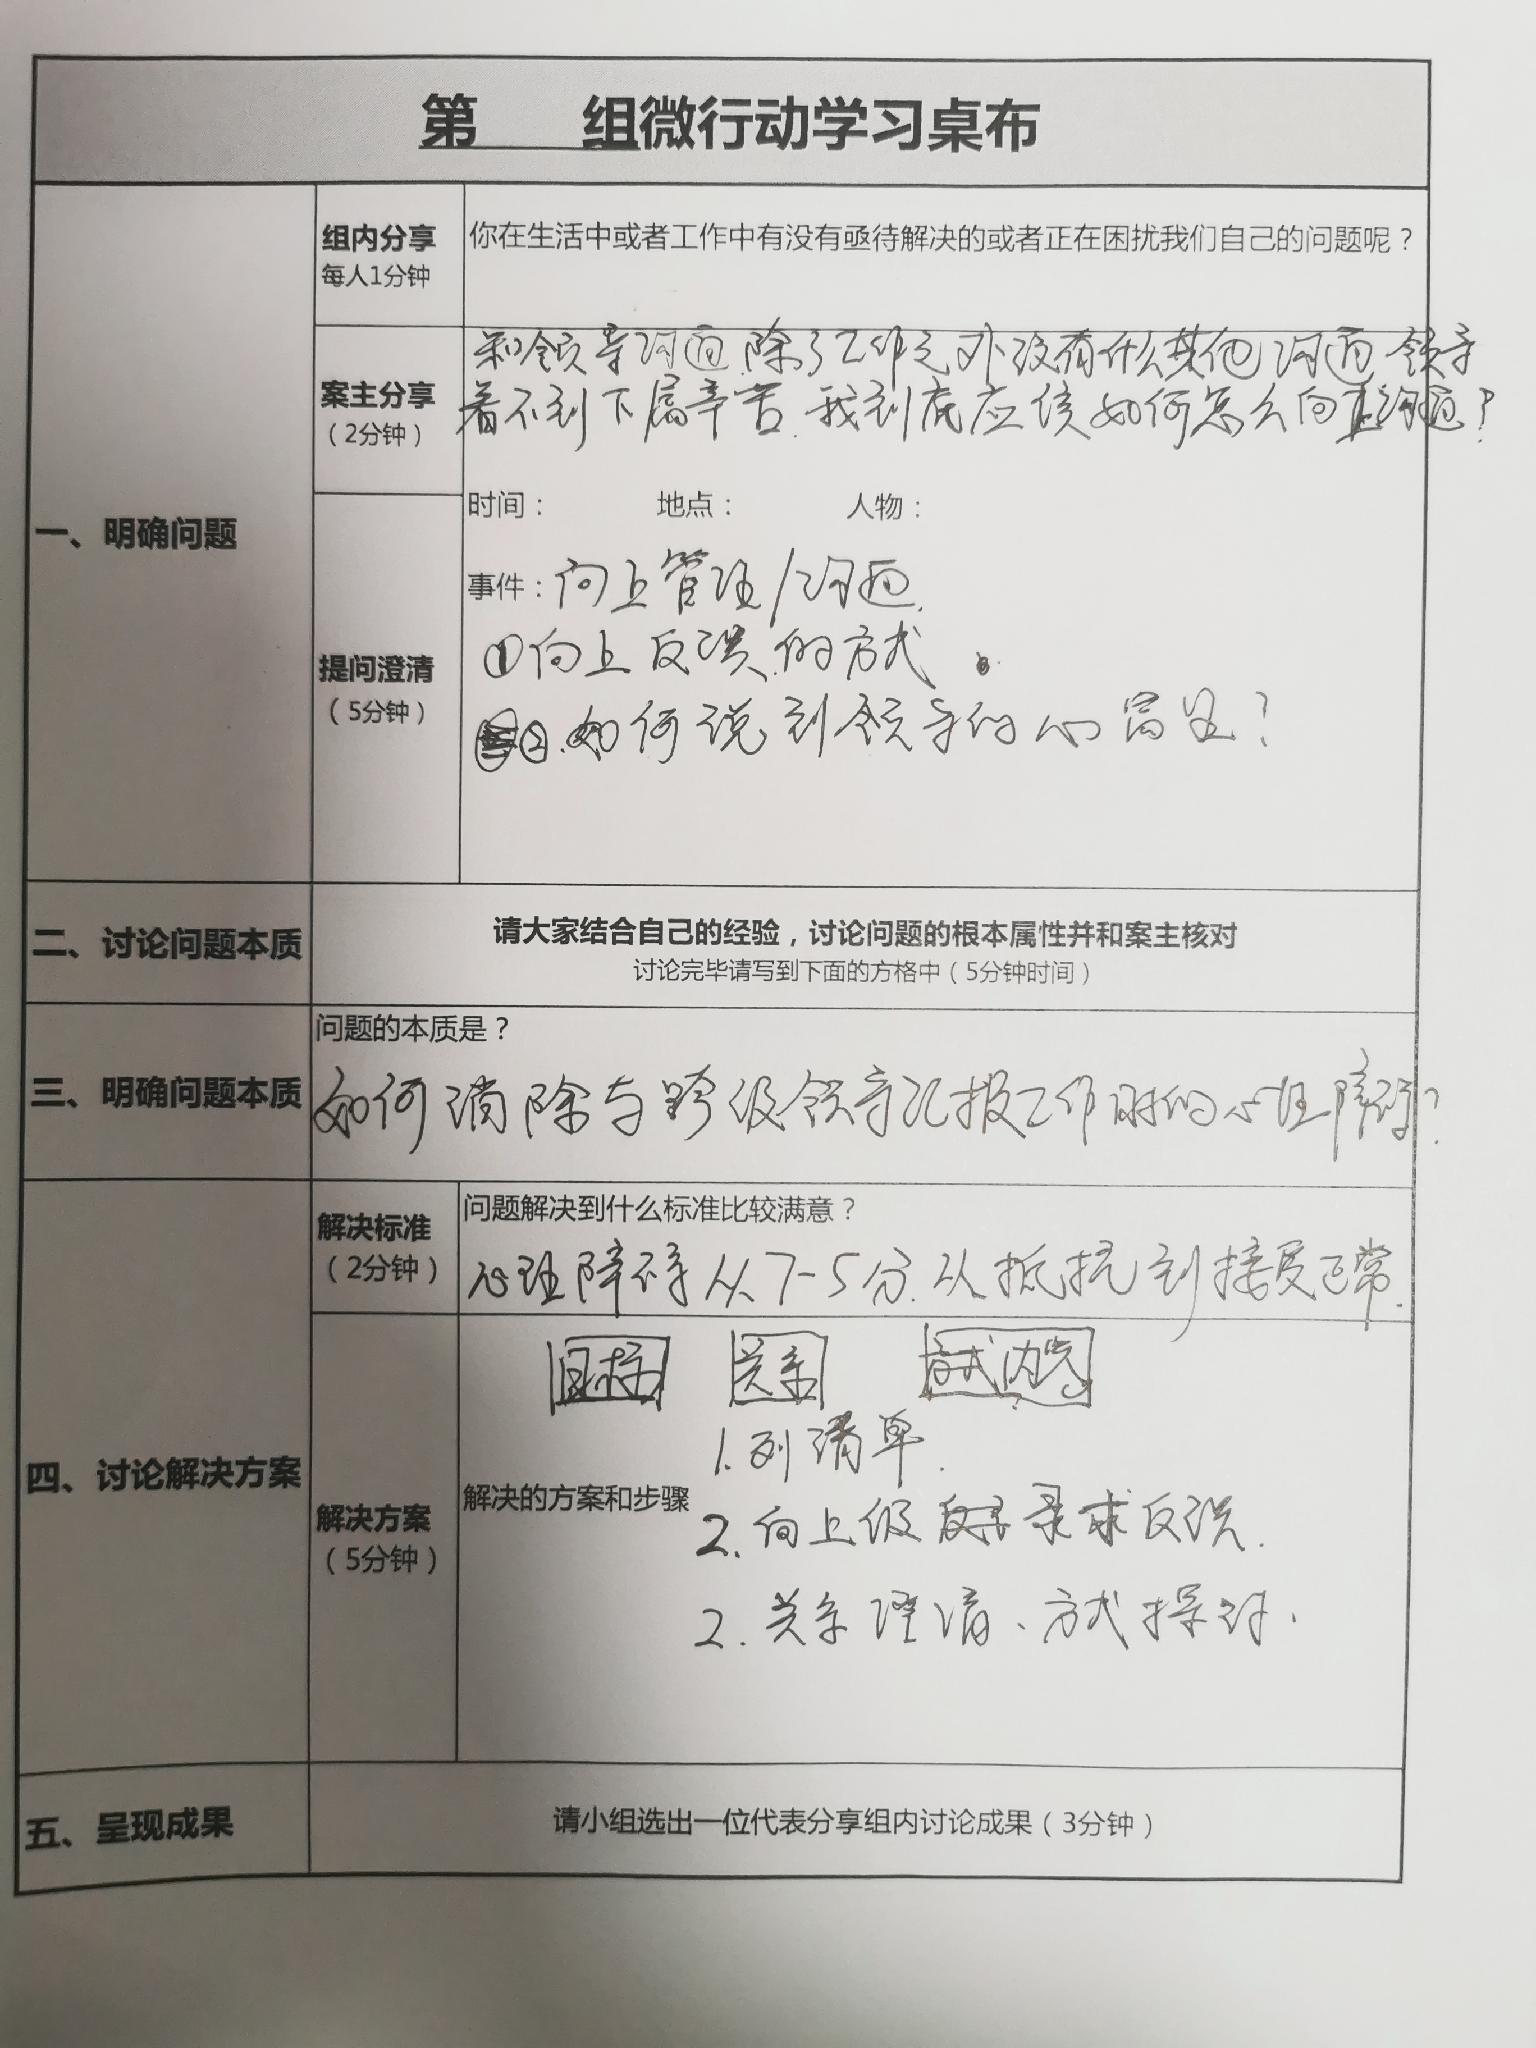 第 组微行动学习桌布
组内分享
每人1分钟
你在生活中或者工作中有没有亟待解决的或者正在困扰我们自己的问题呢？
案主分享
（2分钟）
和领导沟通,除了工作之外没有什么其他沟通 领导
看不到下属辛苦.我到底应该如何怎么向上沟通?
一、明确问题
时间： 地点： 人物：
事件：向上管理/沟通.
提问澄清
（5分钟）
①向上反馈的方式.
②.如何说到领导的心窝里?
二、讨论问题本质
请大家结合自己的经验，讨论问题的根本属性并和案主核对
讨论完毕请写到下面的方格中（5分钟时间）
三、明确问题本质
问题的本质是？
如何消除与跨级领导汇报工作时的心理障碍?
四、讨论解决方案
解决标准
（2分钟）
问题解决到什么标准比较满意？
心理障碍从7-5分.从抵抗到接受正常.
解决方案
（5分钟）
目标 关系 方式内容
1.列清单.
解决的方案和步骤
2.向上级寻求反馈.
2.关系澄清、方式探讨.
五、呈现成果
请小组选出一位代表分享组内讨论成果（3分钟）